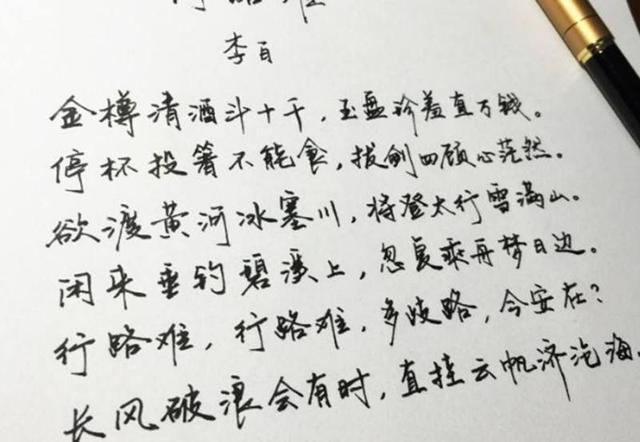 行路难
李白
金樽清酒斗十千，玉盘珍羞直万钱。
停杯投箸不能食，拔剑四顾心茫然。
欲渡黄河冰塞川，将登太行雪满山。
闲来垂钓碧溪上，忽复乘舟梦日边。
行路难，行路难，多歧路，今安在？
长风破浪会有时，直挂云帆济沧海。